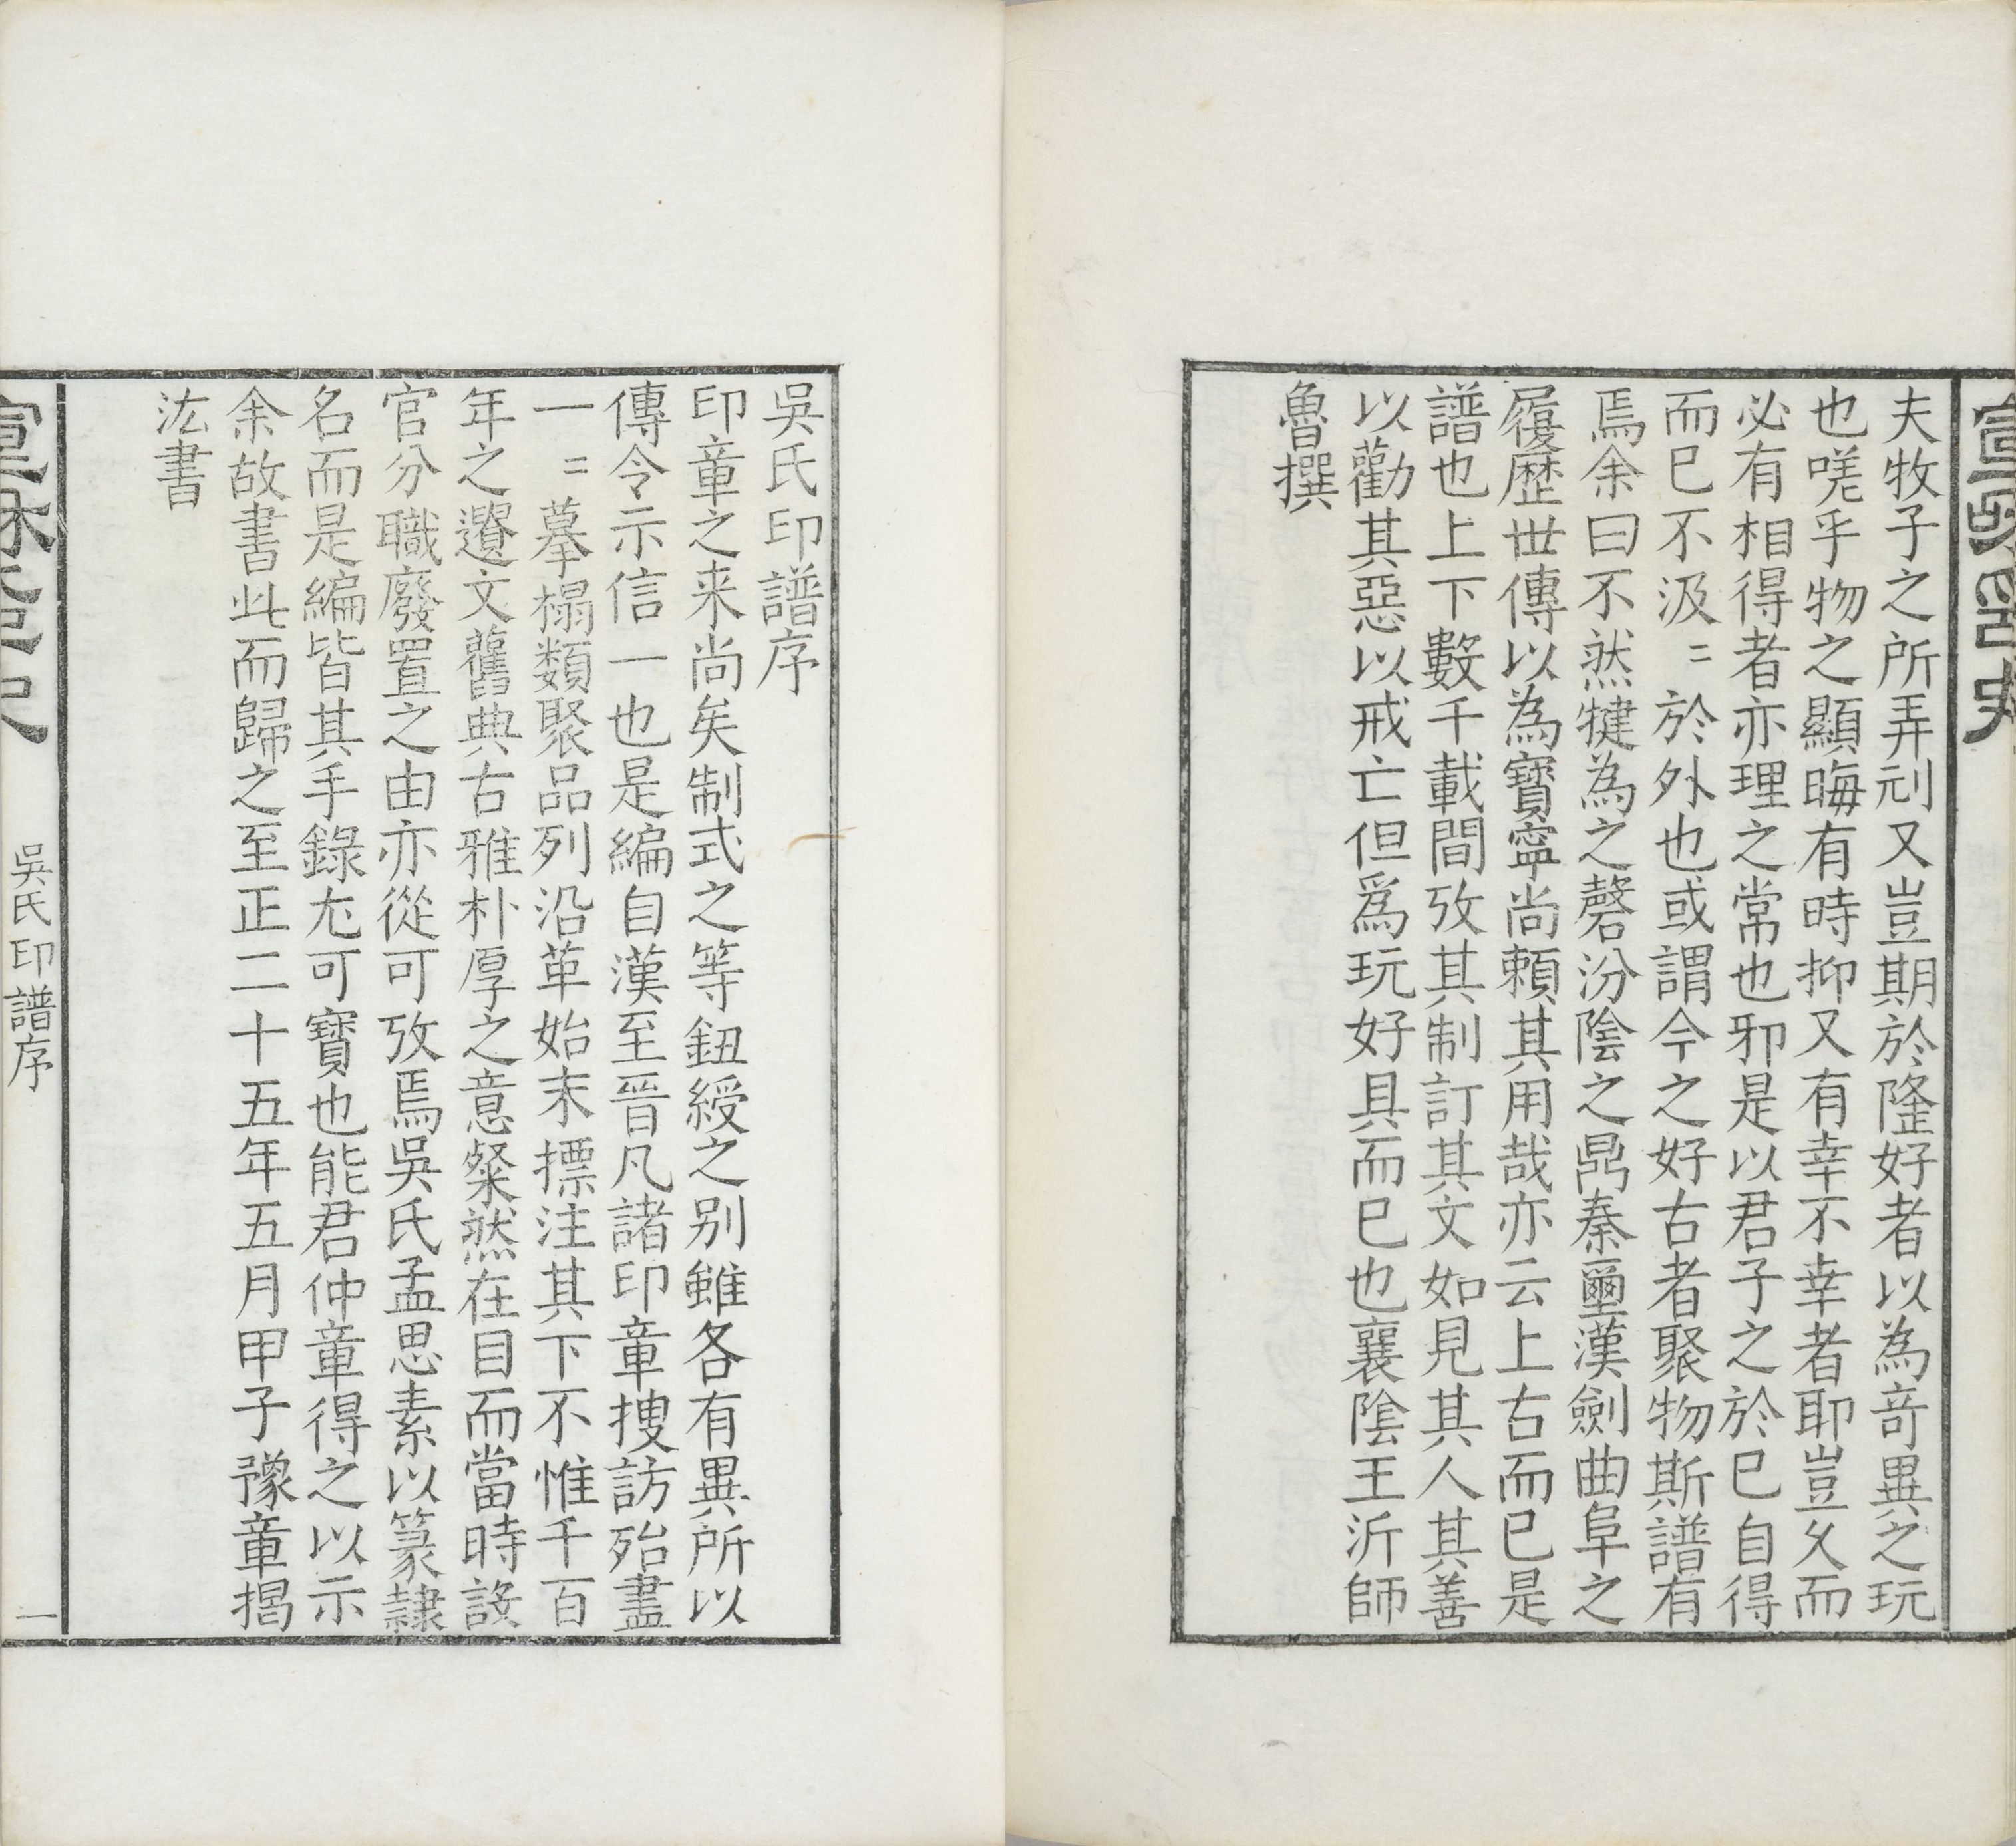 夫牧子之所弄刓又豈期於隆好者以為竒異之玩
也嘆乎物之顯晦有時抑又有幸不幸者耶豈乆而
必有相得者亦理之常也邪是以君子之於巳自得
而巳不汲〻於外也或謂今之好古者聚物斯譜有
焉余曰不然犍為之磬汾陰之鼎秦璽漢劍曲阜之
履歴世傳以為寳寧尚賴其用哉亦云上古而已是
譜也上下數千載間攷其制訂其文如見其人其善
以勸其惡以戒亡但爲玩好具而巳也襄陰王沂師
魯撰
吳氏印譜序
印章之来尚矣制式之等鈕綬之别雖各有異所以
傳令示信一也是編自漢至晉凡諸印章搜訪殆盡
一〻摹榻類聚品列沿革始末摽注其下不惟千百
年之遺文舊典古雅朴厚之意粲然在目而當時設
官分職廢置之由亦從可攷焉吳氏孟思素以篆隷
名而是編皆其手錄尤可寶也能君仲章得之以示
余故書此而歸之至正二十五年五月甲子豫章揭
汯書
吳氏印譜序
一